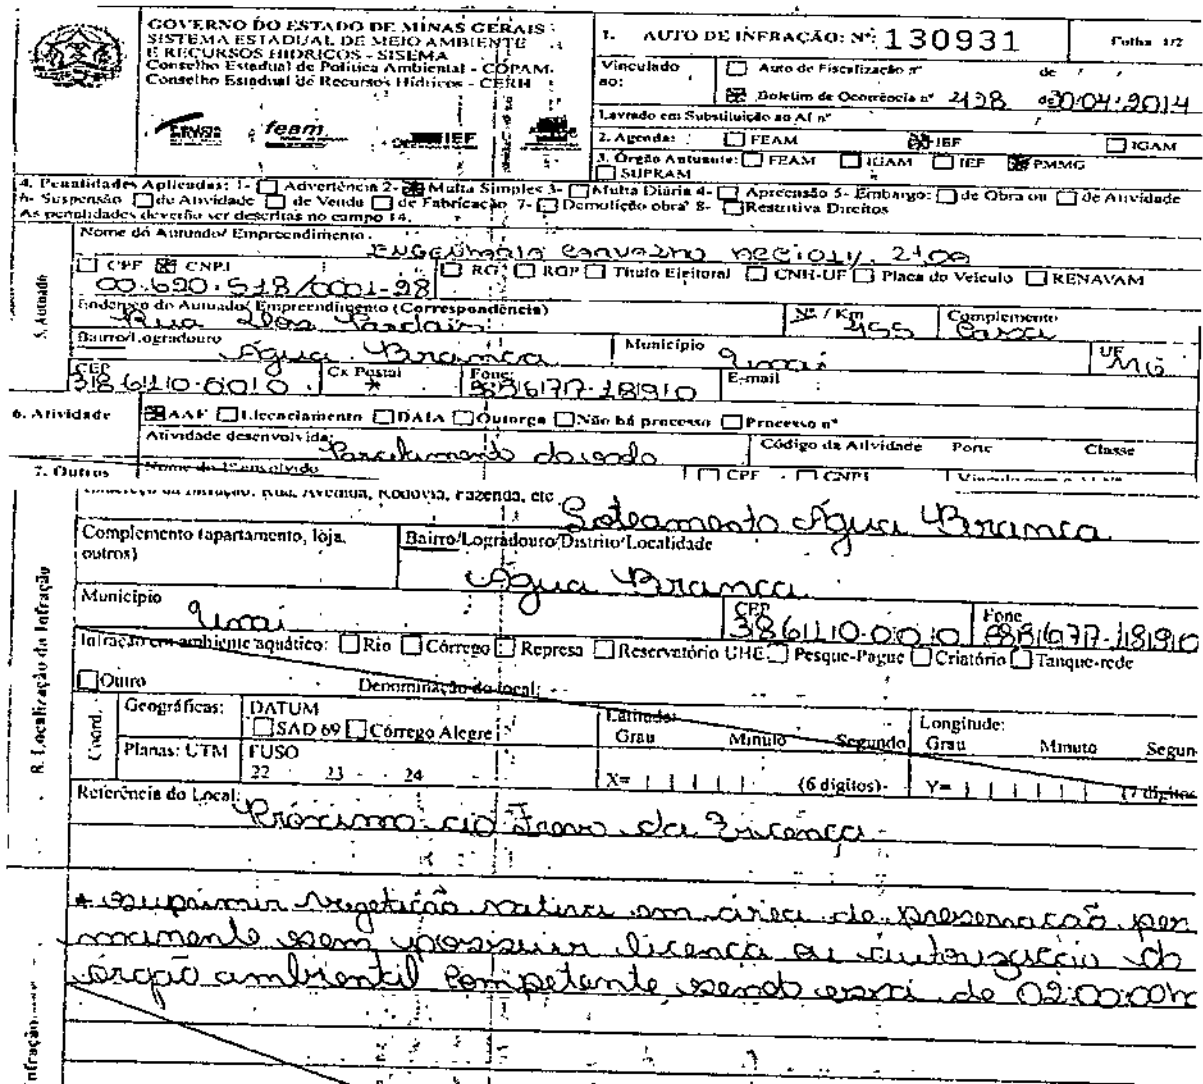 GOVERNO DO ESTADO DE MINAS GERAIS
SISTEMA ESTADUAL DE MEIO AMBIENTE
E RECURSOS HIDRICOS - SISEMA
Conselho Estadual de Política Ambiental - COPAM
Conselho Estadual de Recursos Hídricos - CERH
feam
IEF
1. AUTO DE INFRAÇÃO: Nº 130931 Folha 1/2
Vinculado ao: Auto de Fiscalização nº de / /
Boletim de Ocorrência nº 2428 de 30:04:2014
Lavrado em Substituição ao AI nº /
2. Agenda: FEAM IEF IGAM
3. Órgão Autuante: FEAM IGAM IEF PMMG
SUPRAM
4. Penalidades Aplicadas: 1- Advertência 2- Multa Simples 3- Multa Diária 4- Apreensão 5- Embargo: de Obra ou de Atividade
6- Suspensão de Atividade de Venda de Fabricação 7- Demolição obra 8- Restritiva Direitos
As penalidades deverão ser descritas no campo 14.
5. Autuado
Nome do Autuado/ Empreendimento
CPF CNPJ RG RGP Título Eleitoral CNH-UF Placa do Veículo RENAVAM
00.690.518/0001-98
Endereço do Autuado/ Empreendimento (Correspondência) Nº / Km Complemento
Rua dos Pardais 455 Casa
Bairro/Logradouro Município UF
Água Branca Unaí MG
CEP Cx Postal Fone: E-mail
38610-000
6. Atividade AAF Licenciamento DAIA Outorga Não há processo Processo nº
Atividade desenvolvida: Código da Atividade Porte Classe
Parcelamento do solo
7. Outros Nome do Envolvido CPF CNPJ
Endereço da Infração, Rua, Avenida, Rodovia, Fazenda, etc
Loteamento Água Branca
Complemento (apartamento, loja, outros) Bairro/Logradouro/Distrito/Localidade
Água Branca
8. Localização da Infração
Município CEP Fone
Unaí 38610-000
Infração em ambiente aquático: Rio Córrego Represa Reservatório UHE Pesque-Pague Criatório Tanque-rede
Outro Denominação do local:
Coord. Geográficas: DATUM Latitude: Longitude:
SAD 69 Córrego Alegre Grau Minuto Segundo Grau Minuto Segun
Planas: UTM FUSO
22 23 24 X= (6 dígitos) Y= (7 dígitos
Referência do Local:
Próximo ao Trevo da
suprimir vegetação nativa em área de preservação per
manente sem possuir licença ou autorização do
órgão ambiental competente sendo de 02:00:00h
Infração